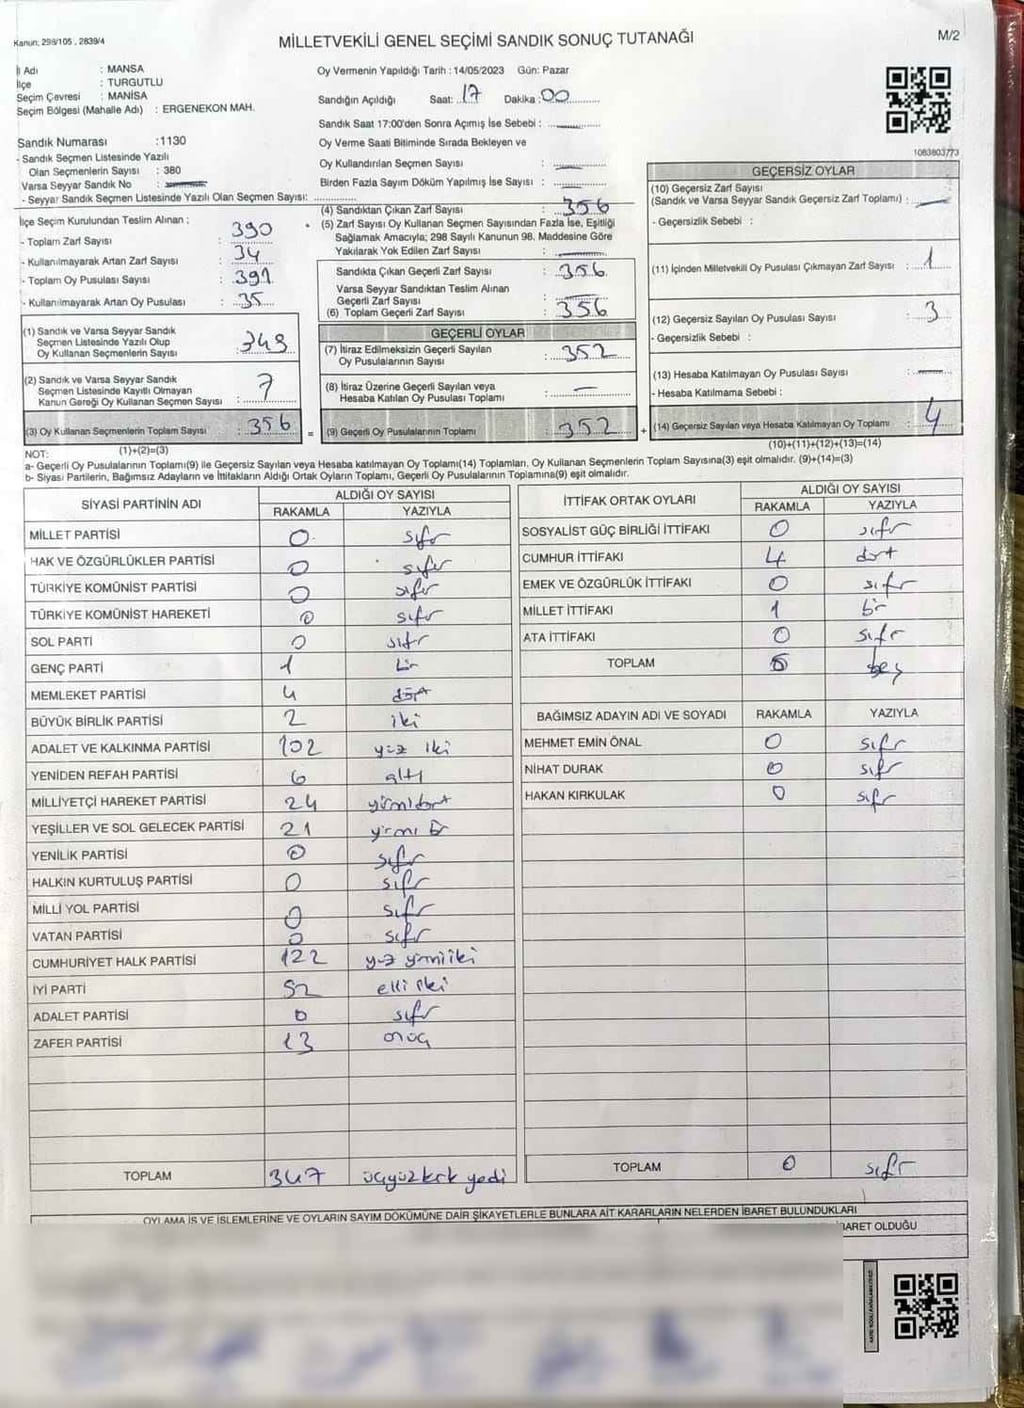 Kanun: 298/105 , 2839/4
MİLLETVEKİLİ GENEL SEÇİMİ SANDIK SONUÇ TUTANAĞI
M/2
İl Adı : MANSA
İlçe : TURGUTLU
Seçim Çevresi : MANİSA
Seçim Bölgesi (Mahalle Adı) : ERGENEKON MAH.
Sandık Numarası :1130
- Sandık Seçmen Listesinde Yazılı
Olan Seçmenlerin Sayısı : 380
Varsa Seyyar Sandık No :
- Seyyar Sandık Seçmen Listesinde Yazılı Olan Seçmen Sayısı:
Oy Vermenin Yapıldığı Tarih : 14/05/2023 Gün: Pazar
Sandığın Açıldığı Saat: 17 Dakika : 00
Sandık Saat 17:00'den Sonra Açımış İse Sebebi :
Oy Verme Saati Bitiminde Sırada Bekleyen ve
Oy Kullandırılan Seçmen Sayısı :
Birden Fazla Sayım Döküm Yapılmış İse Sayısı :
1083803773
İlçe Seçim Kurulundan Teslim Alınan ;
- Toplam Zarf Sayısı : 390
- Kullanılmayarak Artan Zarf Sayısı : 34
- Toplam Oy Pusulası Sayısı : 391
- Kullanılmayarak Artan Oy Pusulası : 35
(1) Sandık ve Varsa Seyyar Sandık
Seçmen Listesinde Yazılı Olup
Oy Kullanan Seçmenlerin Sayısı : 349
(2) Sandık ve Varsa Seyyar Sandık
Seçmen Listesinde Kayıtlı Olmayan
Kanun Gereği Oy Kullanan Seçmen Sayısı : 7
(3) Oy Kullanan Seçmenlerin Toplam Sayısı : 356
(1)+(2)=(3)
(4) Sandıktan Çıkan Zarf Sayısı : 356
(5) Zarf Sayısı Oy Kullanan Seçmen Sayısından Fazla İse, Eşitliği
Sağlamak Amacıyla; 298 Sayılı Kanunun 98. Maddesine Göre
Yakılarak Yok Edilen Zarf Sayısı :
Sandıkta Çıkan Geçerli Zarf Sayısı : 356
Varsa Seyyar Sandıktan Teslim Alınan
Geçerli Zarf Sayısı :
(6) Toplam Geçerli Zarf Sayısı : 356
GEÇERLİ OYLAR
(7) İtiraz Edilmeksizin Geçerli Sayılan
Oy Pusulalarının Sayısı : 352
(8) İtiraz Üzerine Geçerli Sayılan veya
Hesaba Katılan Oy Pusulası Toplamı : —
= (9) Geçerli Oy Pusulalarının Toplamı : 352
GEÇERSİZ OYLAR
(10) Geçersiz Zarf Sayısı
(Sandık ve Varsa Seyyar Sandık Geçersiz Zarf Toplamı) : —
- Geçersizlik Sebebi :
(11) İçinden Milletvekili Oy Pusulası Çıkmayan Zarf Sayısı : 1
(12) Geçersiz Sayılan Oy Pusulası Sayısı : 3
- Geçersizlik Sebebi :
(13) Hesaba Katılmayan Oy Pusulası Sayısı : —
- Hesaba Katılmama Sebebi :
+ (14) Geçersiz Sayılan veya Hesaba Katılmayan Oy Toplamı : 4
(10)+(11)+(12)+(13)=(14)
NOT:
a- Geçerli Oy Pusulalarının Toplamı(9) ile Geçersiz Sayılan veya Hesaba katılmayan Oy Toplamı(14) Toplamları, Oy Kullanan Seçmenlerin Toplam Sayısına(3) eşit olmalıdır. (9)+(14)=(3)
b- Siyasi Partilerin, Bağımsız Adayların ve İttifakların Aldığı Ortak Oyların Toplamı, Geçerli Oy Pusulalarının Toplamına(9) eşit olmalıdır.
SİYASİ PARTİNİN ADI ALDIĞI OY SAYISI
RAKAMLA YAZIYLA
MİLLET PARTİSİ 0 sıfır
HAK VE ÖZGÜRLÜKLER PARTİSİ 0 sıfır
TÜRKİYE KOMÜNİST PARTİSİ 0 sıfır
TÜRKİYE KOMÜNİST HAREKETİ 0 sıfır
SOL PARTİ 0 sıfır
GENÇ PARTİ 1 bir
MEMLEKET PARTİSİ 4 dört
BÜYÜK BİRLİK PARTİSİ 2 iki
ADALET VE KALKINMA PARTİSİ 102 yüz iki
YENİDEN REFAH PARTİSİ 6 altı
MİLLİYETÇİ HAREKET PARTİSİ 24 yirmidört
YEŞİLLER VE SOL GELECEK PARTİSİ 21 yirmi bir
YENİLİK PARTİSİ 0 sıfır
HALKIN KURTULUŞ PARTİSİ 0 sıfır
MİLLİ YOL PARTİSİ 0 sıfır
VATAN PARTİSİ 0 sıfır
CUMHURİYET HALK PARTİSİ 122 yüz yirmiiki
İYİ PARTİ 52 elli iki
ADALET PARTİSİ 0 sıfır
ZAFER PARTİSİ 13 onüç
TOPLAM 347 üçyüz kırk yedi
İTTİFAK ORTAK OYLARI ALDIĞI OY SAYISI
RAKAMLA YAZIYLA
SOSYALİST GÜÇ BİRLİĞİ İTTİFAKI 0 sıfır
CUMHUR İTTİFAKI 4 dört
EMEK VE ÖZGÜRLÜK İTTİFAKI 0 sıfır
MİLLET İTTİFAKI 1 bir
ATA İTTİFAKI 0 sıfır
TOPLAM 5 beş
BAĞIMSIZ ADAYIN ADI VE SOYADI RAKAMLA YAZIYLA
MEHMET EMİN ÖNAL 0 sıfır
NİHAT DURAK 0 sıfır
HAKAN KIRKULAK 0 sıfır
TOPLAM 0 sıfır
OYLAMA İŞ VE İŞLEMLERİNE VE OYLARIN SAYIM DÖKÜMÜNE DAİR ŞİKAYETLERLE BUNLARA AİT KARARLARIN NELERDEN İBARET BULUNDUKLARI
İBARET OLDUĞU